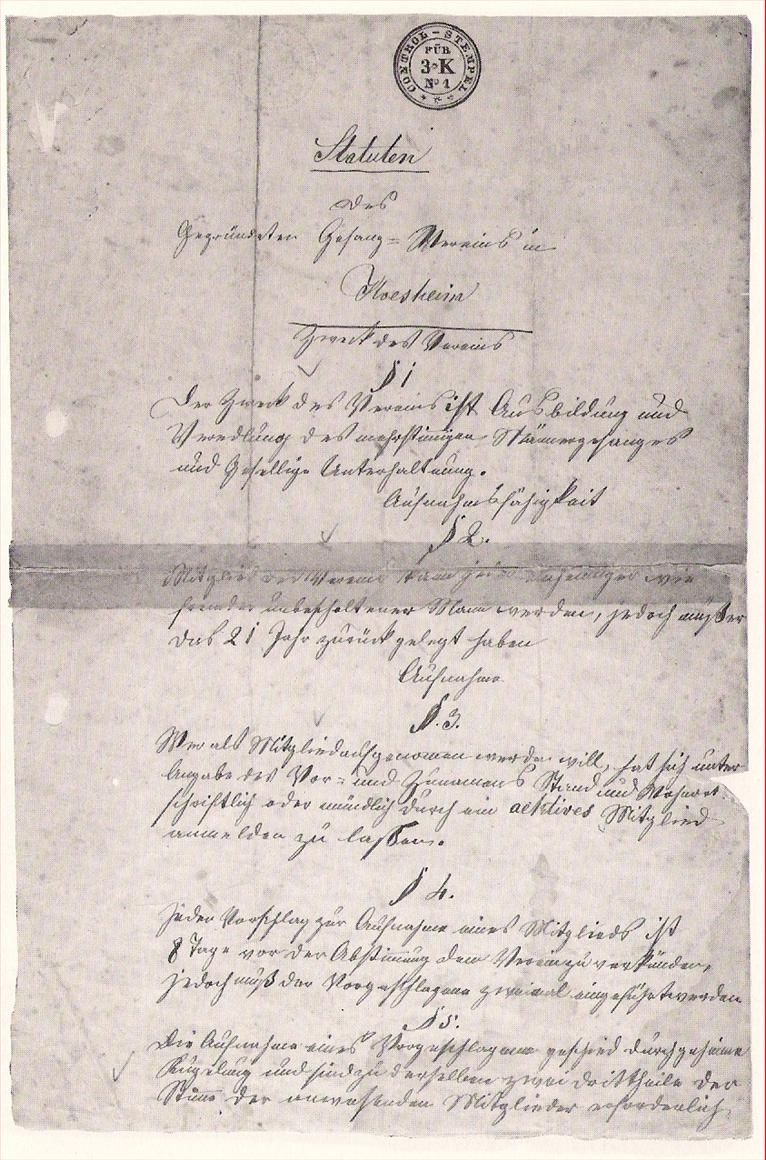 CONTROL-STEMPEL
FÜR
3·K
No 1
Statuten
des
Gegründeten Gesang= Vereins in
Floesheim
Zweck des Vereins
§ 1
Der Zweck des Vereins ist Ausbildung und
Veredlung des mehrstimigen Männergesanges
und Gesellige Unterhaltung.
Aufnahmsfähigkeit
§ 2.
Mitglied des Vereins kann jeder wie
fremder unbescholtener Mann werden, jedoch muß er
das 21 Jahr zurück gelegt haben
Aufnahme
§. 3.
Wer als Mitglied aufgenomen werden will, hat sich unter
Angabe des Vor= und Zunamens Stand und Wohnort
schriftlich oder mündlich durch ein acktives Mitglied
anmelden zu lassen.
§ 4.
Jeder Vorschlag zur Aufnahme eines Mitglieds ist
8 Tage vor der Abstimung dem Verein zu verkünden,
jedoch muß der Vorgeschlagene zweimal eingeführt werden
§ 5.
Die Aufnahme eines Vorgeschlagenen geschied durch geheime
Kugelung und sind zu derselben zwei drittheile der
Stime der anwesenden Mitglieder erforderlich